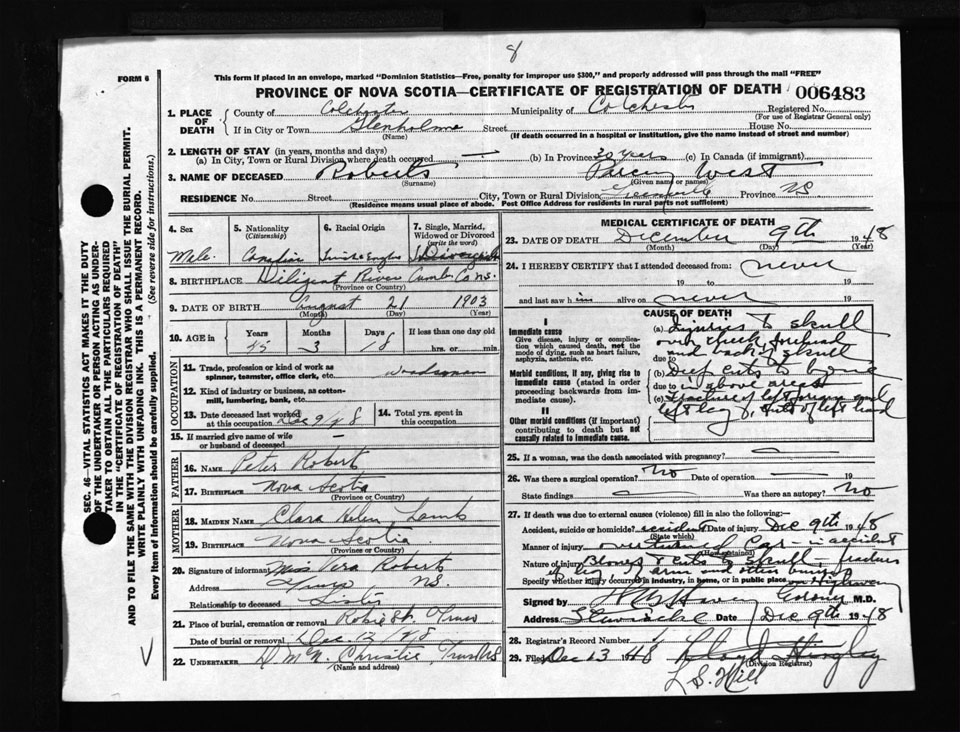 8
FORM 6
This form if placed in an envelope, marked "Dominion Statistics—Free, penalty for improper use $300," and properly addressed will pass through the mail "FREE"
PROVINCE OF NOVA SCOTIA—CERTIFICATE OF REGISTRATION OF DEATH 006483
1. PLACE OF DEATH { County of Colchester Municipality of Colchester Registered No.
(For use of Registrar General only)
If in City or Town Glenholme Street House No.
(Name) (If death occurred in a hospital or institution, give the name instead of street and number)
2. LENGTH OF STAY (in years, months and days)
(a) In City, Town or Rural Division where death occurred — (b) In Province 30 years (c) In Canada (if immigrant)
3. NAME OF DECEASED Roberts West
(Surname) (Given name or names)
RESIDENCE No. Street City, Town or Rural Division Province NS
(Residence means usual place of abode. Post Office Address for residents in rural parts not sufficient)
4. Sex Male
5. Nationality (Citizenship) Canadian
6. Racial Origin
7. Single, Married, Widowed or Divorced (write the word)
8. BIRTHPLACE Diligent River Cumb Co NS.
(Province or Country)
9. DATE OF BIRTH August 21 1903
(Month) (Day) (Year)
10. AGE in { Years Months Days If less than one day old
45 3 18 hrs. or min.
OCCUPATION
11. Trade, profession or kind of work as spinner, teamster, office clerk, etc. woodsman
12. Kind of industry or business, as cotton-mill, lumbering, bank, etc.
13. Date deceased last worked at this occupation Dec 9/48
14. Total yrs. spent in this occupation
15. If married give name of wife or husband of deceased —
FATHER
16. NAME Peter Robert
17. BIRTHPLACE Nova Scotia
(Province or Country)
MOTHER
18. MAIDEN NAME Clara Helen Lamb
19. BIRTHPLACE Nova Scotia
(Province or Country)
20. Signature of informant Miss Vera Roberts
Address NS.
Relationship to deceased Sister
21. Place of burial, cremation or removal Robie St. Truro
Date of burial or removal Dec. 12/48
22. UNDERTAKER Christie, Truro NS
(Name and address)
MEDICAL CERTIFICATE OF DEATH
23. DATE OF DEATH December 9th 1948
(Month) (Day) (Year)
24. I HEREBY CERTIFY that I attended deceased from: never
19 to 19
and last saw him alive on never 19
CAUSE OF DEATH
I
Immediate cause
Give disease, injury or complication which caused death, not the mode of dying, such as heart failure, asphyxia, asthenia, etc.
Morbid conditions, if any, giving rise to immediate cause (stated in order proceeding backwards from immediate cause).
II
Other morbid conditions (if important) contributing to death but not causally related to immediate cause.
(a) Injuries to skull
over cheek, forehead
due to and back of skull
(b) Deep cuts to bone
due to in above areas
(c) Fracture of left arm and
left leg, cuts of left hand
25. If a woman, was the death associated with pregnancy? —
26. Was there a surgical operation? No Date of operation 19
State findings — Was there an autopsy? No
27. If death was due to external causes (violence) fill in also the following:
Accident, suicide or homicide? accident Date of injury Dec 9th 1948
(State which)
Manner of injury overturned Car - in accident
(How sustained)
Nature of injury Blows & cuts to skull, fracture
of leg & arm and other bruises
Specify whether injury occurred in industry, in home, or in public place on Highway
Signed by Coroner M.D.
Address Stewiacke Date Dec 9th 1948
28. Registrar's Record Number
29. Filed Dec 13 1948 Lloyd Hingley
(Division Registrar)
L S. Hill
SEC. 46—VITAL STATISTICS ACT MAKES IT THE DUTY
OF THE UNDERTAKER OR PERSON ACTING AS UNDERTAKER TO OBTAIN ALL THE PARTICULARS REQUIRED
IN THE "CERTIFICATE OF REGISTRATION OF DEATH"
AND TO FILE THE SAME WITH THE DIVISION REGISTRAR WHO SHALL ISSUE THE BURIAL PERMIT.
WRITE PLAINLY WITH UNFADING INK. THIS IS A PERMANENT RECORD.
Every item of information should be carefully supplied. (See reverse side for instructions.)